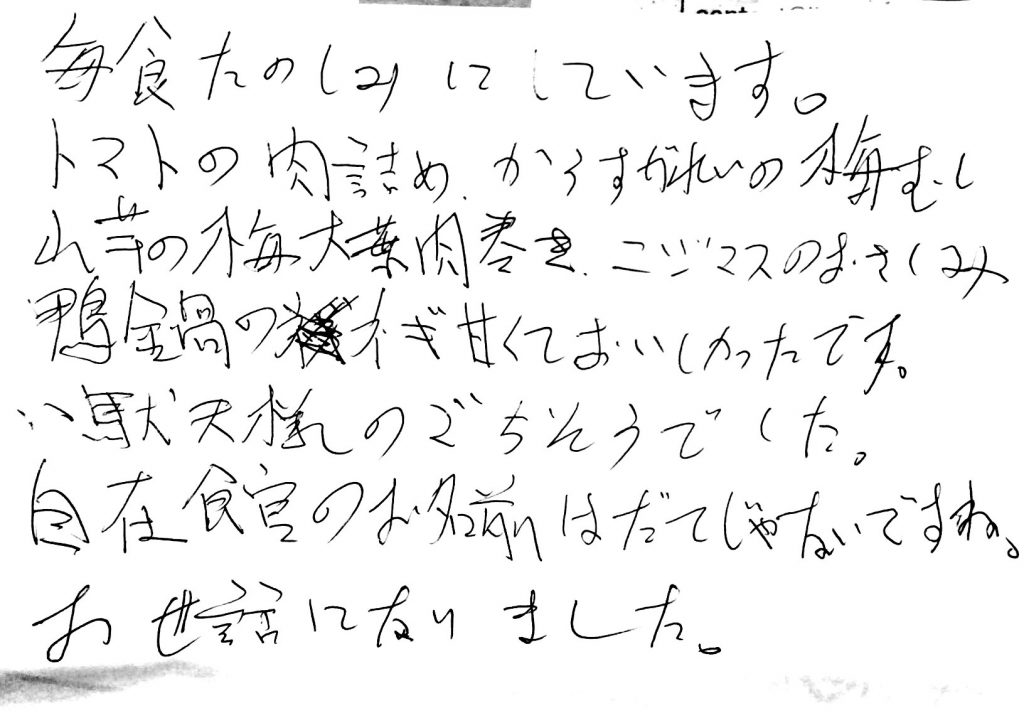 毎食たのしみにしています。
トマトの肉詰め、からすがれいの梅むし
山芋の梅大葉肉巻き、ニジマスのおさしみ
鴨全鍋のネギ甘くておいしかったです。
八献天様のごちそうでした。
自在食宮のお名前はだてじゃないですね。
お世話になりました。